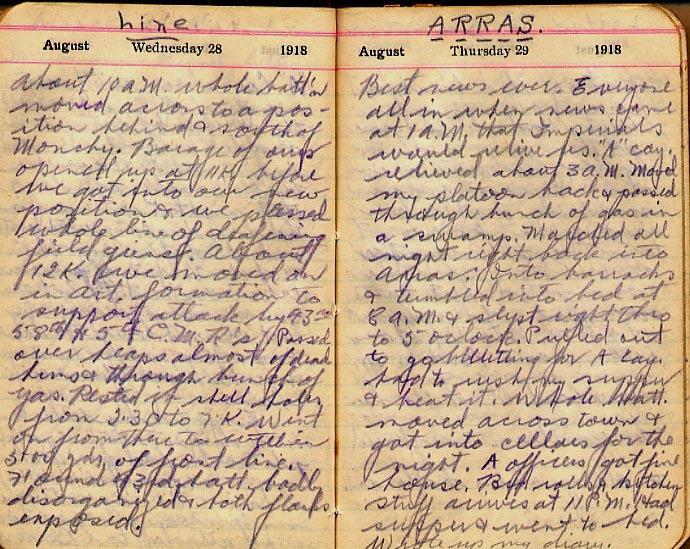 Line
August Wednesday 28 1918
about 10 a.m. whole batt'n
moved across to a pos-
ition behind & south of
Monchy. Barage of ours
opened up at 11K. before
we got into our new
position & we passed
whole line of
field guns. About
12K. we moved on
in Art. formation to
support attack by 43rd
58th & 5th C.M.R's. Passed
over heaps almost of dead
huns & through bunch of
gas. Rested in shell holes
from 2.30 to 7K. Went
on from there to within
500 yds of front line.
Found 43rd batt. badly
disorganized & both flanks
exposed.
ARRAS.
August Thursday 29 1918
Best news ever. Everyone
all in when news came
at 1 A.M. that Imperials
would relieve us. "A" coy.
relieved about 3 a.m. Moved
my platoon back & passed
through bunch of gas in
a swamp. Marched all
night right back into
Arras. Into barracks
& tumbled into bed at
8 A.M. & slept right thro
to 5 oclock. Pulled out
to go billetting for A coy.
had to rush my supper
& beat it. Whole batt.
moved across town &
got into cellars for the
night. A officers got fine
house. Bed rolls & kitchen
stuff arrives at 11 P.M. Had
supper & went to bed.
Wrote up my diary.